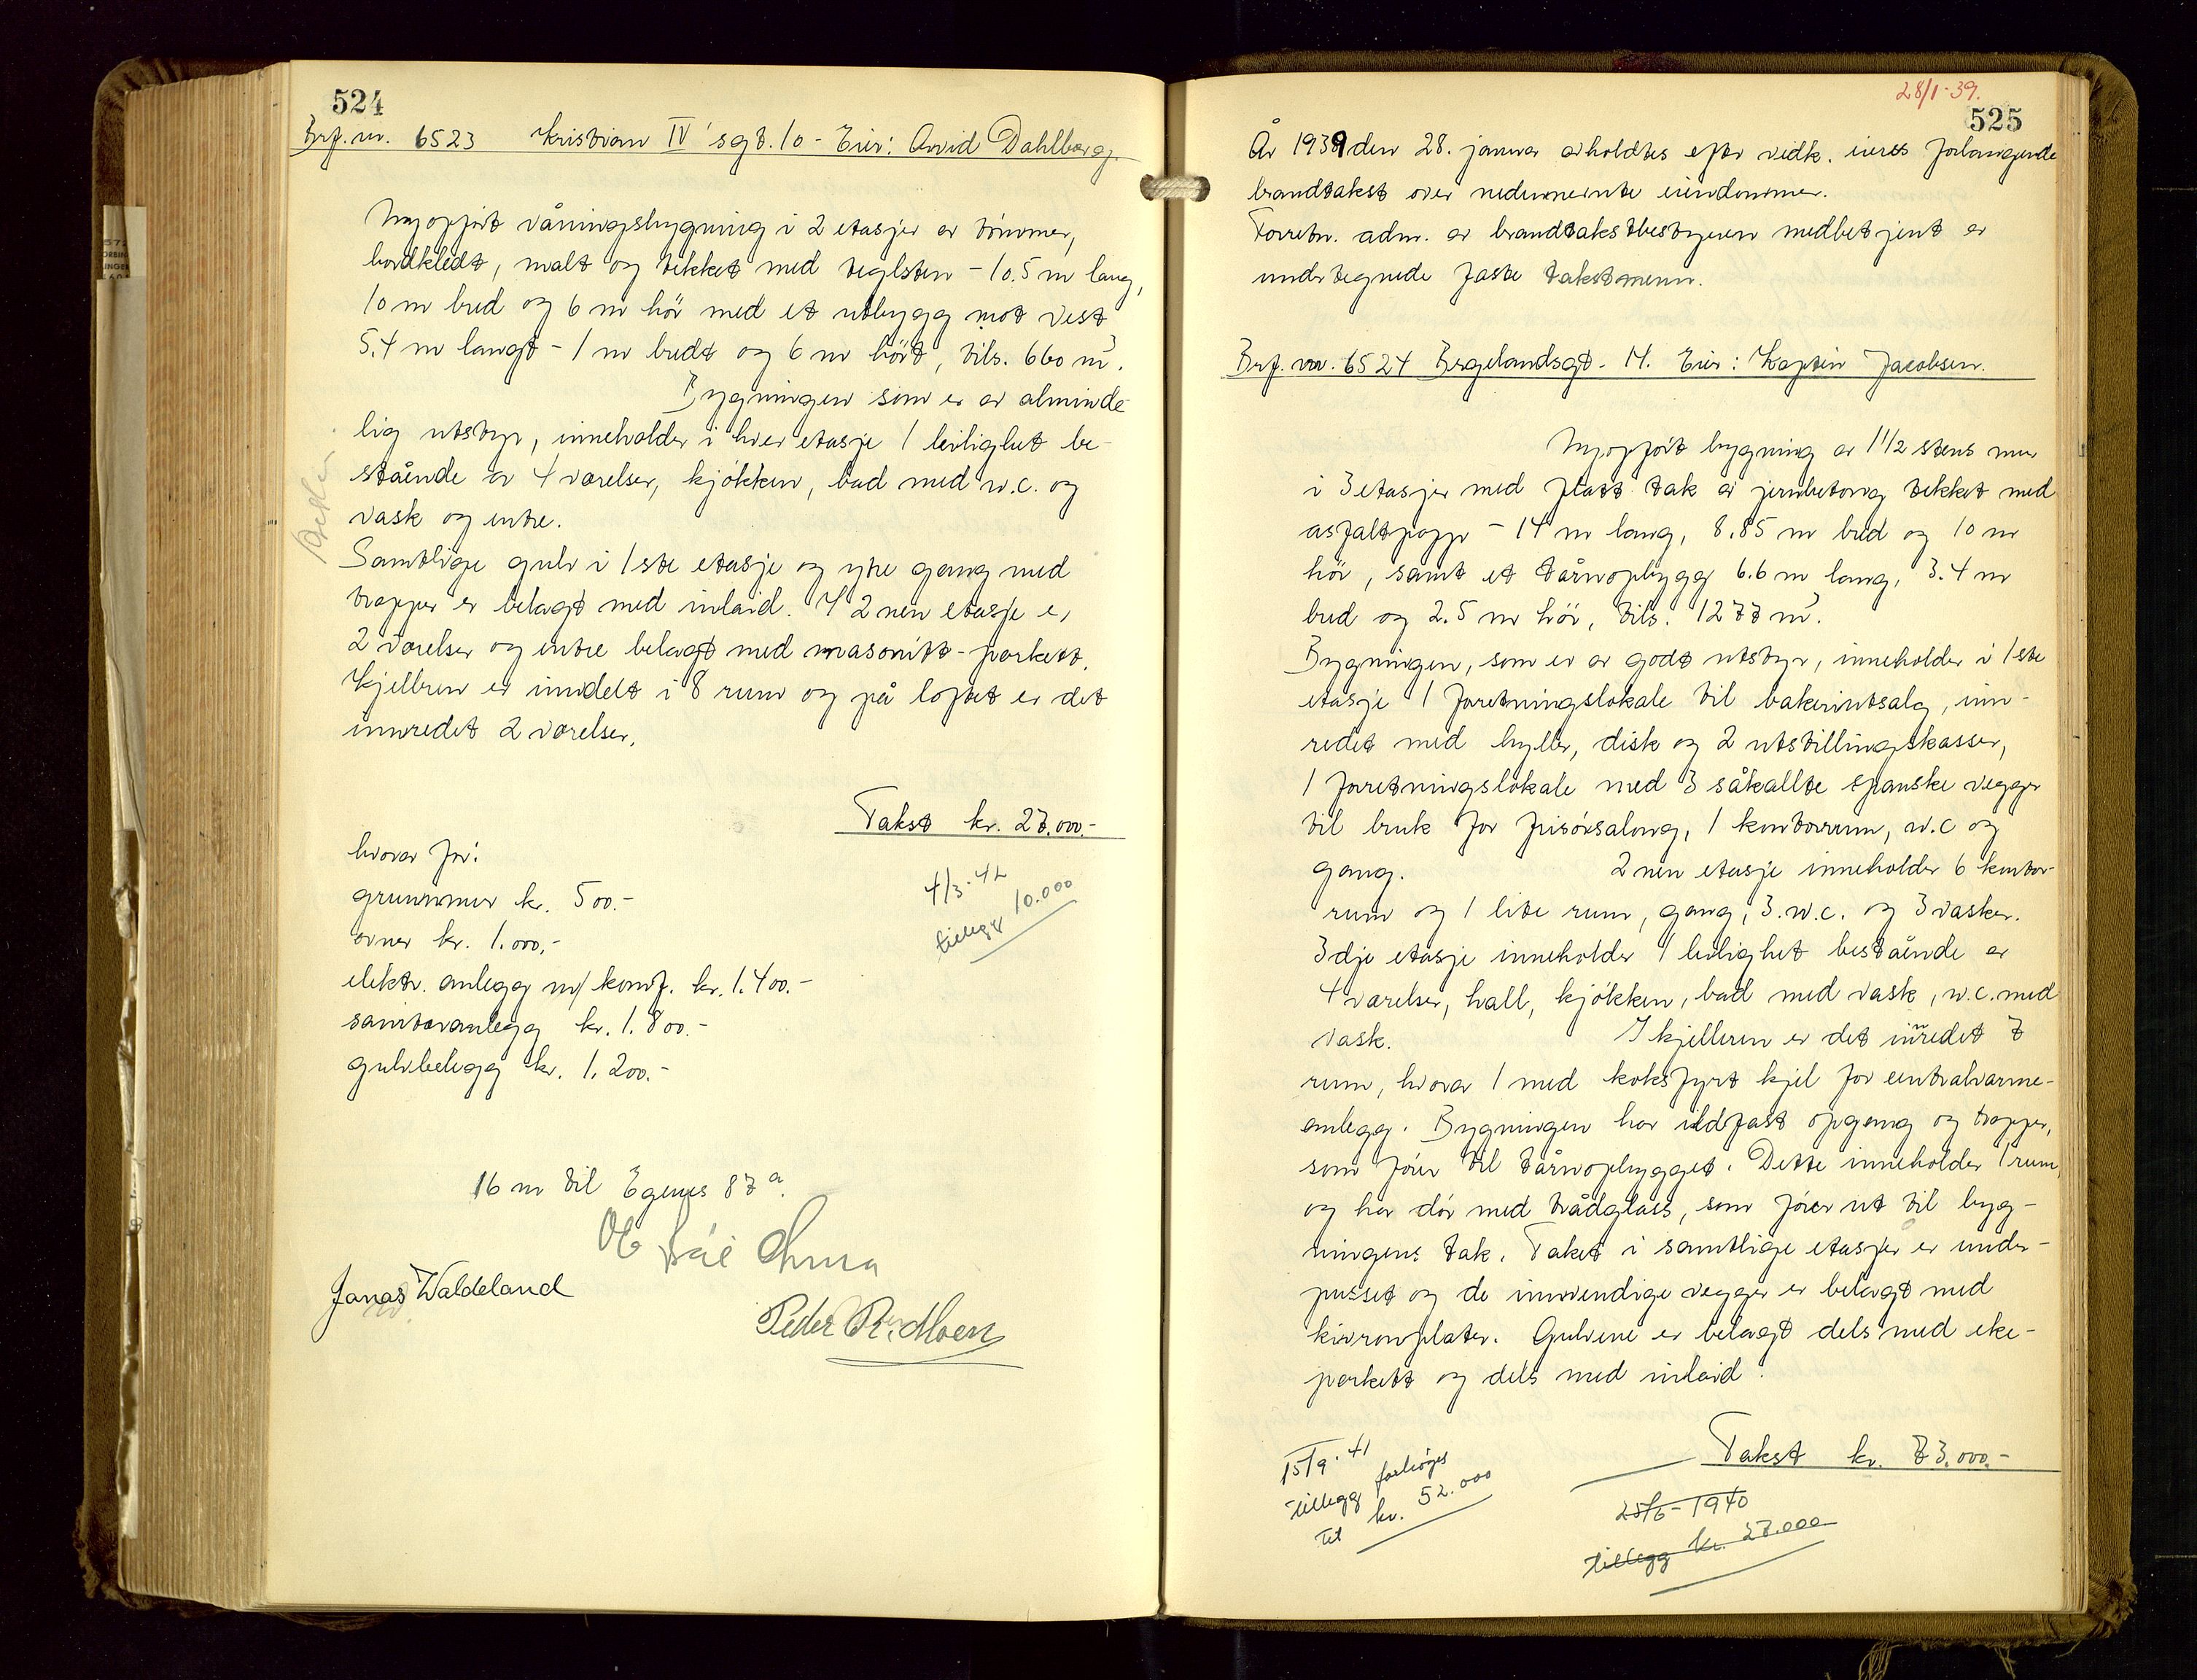 524
Brf. nr. 6523 Kristian IV' sgt. 10 - Eier: Arvid Dahlberg.
Nyopført våningsbygning i 2 etasjer av tømmer,
bordkledt, malt og tekket med teglsten - 10.5 m lang,
10 m bred og 6 m høi med et utbygg mot vest
5.4 m langt - 1 m bredt og 6 m høit, tils. 660 m³.
Bygningen som er av alminde-
lig utstyr, inneholder i hver etasje 1 leilighet be-
stående av 4 værelser, kjøkken, bad med w.c. og
vask og entre.
Samtlige gulv i 1ste etasje og ytre gang med
trapper er belagt med inlaid. I 2nen etasje er
2 værelser og entre belagt med masonitt-parkett.
Kjelleren er inndelt i 8 rum og på loftet er det
innredet 2 værelser.
Takst kr. 27.000.-
hvorav for:
grunnmur kr. 500.-
ovner kr. 1.000,-
elektr. anlegg m/ komf. kr. 1.400.-
sanitæranlegg kr. 1.800.-
gulvbelegg kr. 1.200.-
4/3.42
tillegg 10.000
16 m til Egenes 87 a.
Jonas Waldeland
Peder R. Moen
28/1-39.
525
År 1939 den 28. januar avholdtes efter vedk. eieres forlangende
brandtakst over nedennevnte eiendommer.
Forretn. adm. av brandtakstbestyreren medbetjent av
undertegnede faste takstmenn.
Brf. nr. 6524 Bergelandsgt. 14. Eier: Kaptein Jacobsen.
Nyopført bygning av 1 1/2 stens mur
i 3 etasjer med flatt tak av jernbetong tekket med
asfaltpapp - 14 m lang, 8.85 m bred og 10 m
høi, samt et tårnopbygg 6.6 m lang, 3.4 m
bred og 2.5 m høi, tils. 1277 m³.
Bygningen, som er av godt utstyr, inneholder i 1ste
etasje 1 forretningslokale til bakeriutsalg, inn-
redet med hyller, disk og 2 utstillingskasser,
1 forretningslokale med 3 såkallte spanske vegger
til bruk for frisørsalong, 1 kontorrum, w.c og
gang. 2nen etasje inneholder 6 kontor-
rum og 1 lite rum, gang, 3. w.c. og 3 vasker.
3dje etasje inneholder 1 leilighet bestående av
4 værelser, hall, kjøkken, bad med vask, w.c. med
vask. I kjelleren er det innredet 7
rum, hvorav 1 med koksfyrt kjel for centralvarme-
anlegg. Bygningen har ildfast opgang og trapper,
som fører til tårnopbygget. Dette inneholder 1 rum,
og har dør med trådglass, som fører ut til byg-
ningens tak. Taket i samtlige etasjer er under-
pusset og de innvendige vegger er belagt med
kivronplater. Gulvene er belagt dels med eke-
parkett og dels med inlaid.
Takst kr. 73.000.-
15/9.41
tillegg forhøges
til kr. 52.000
25/6-1940
tillegg kr. 27.000